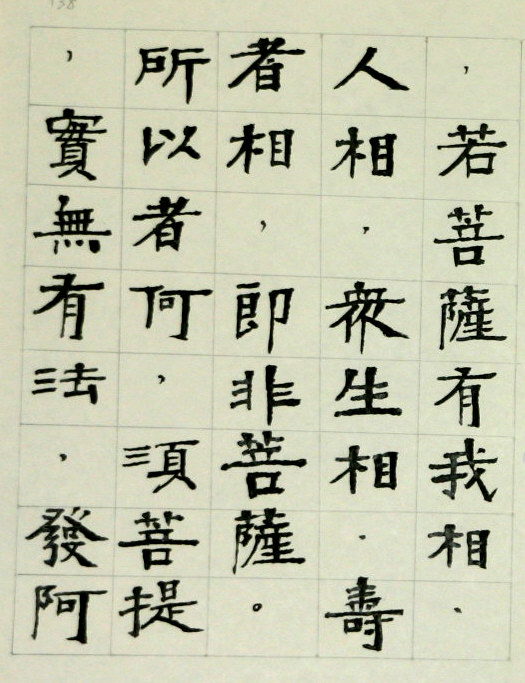 ，若菩薩有我相、
人相，眾生相、壽
者相，即非菩薩。
所以者何，須菩提
，實無有法，發阿